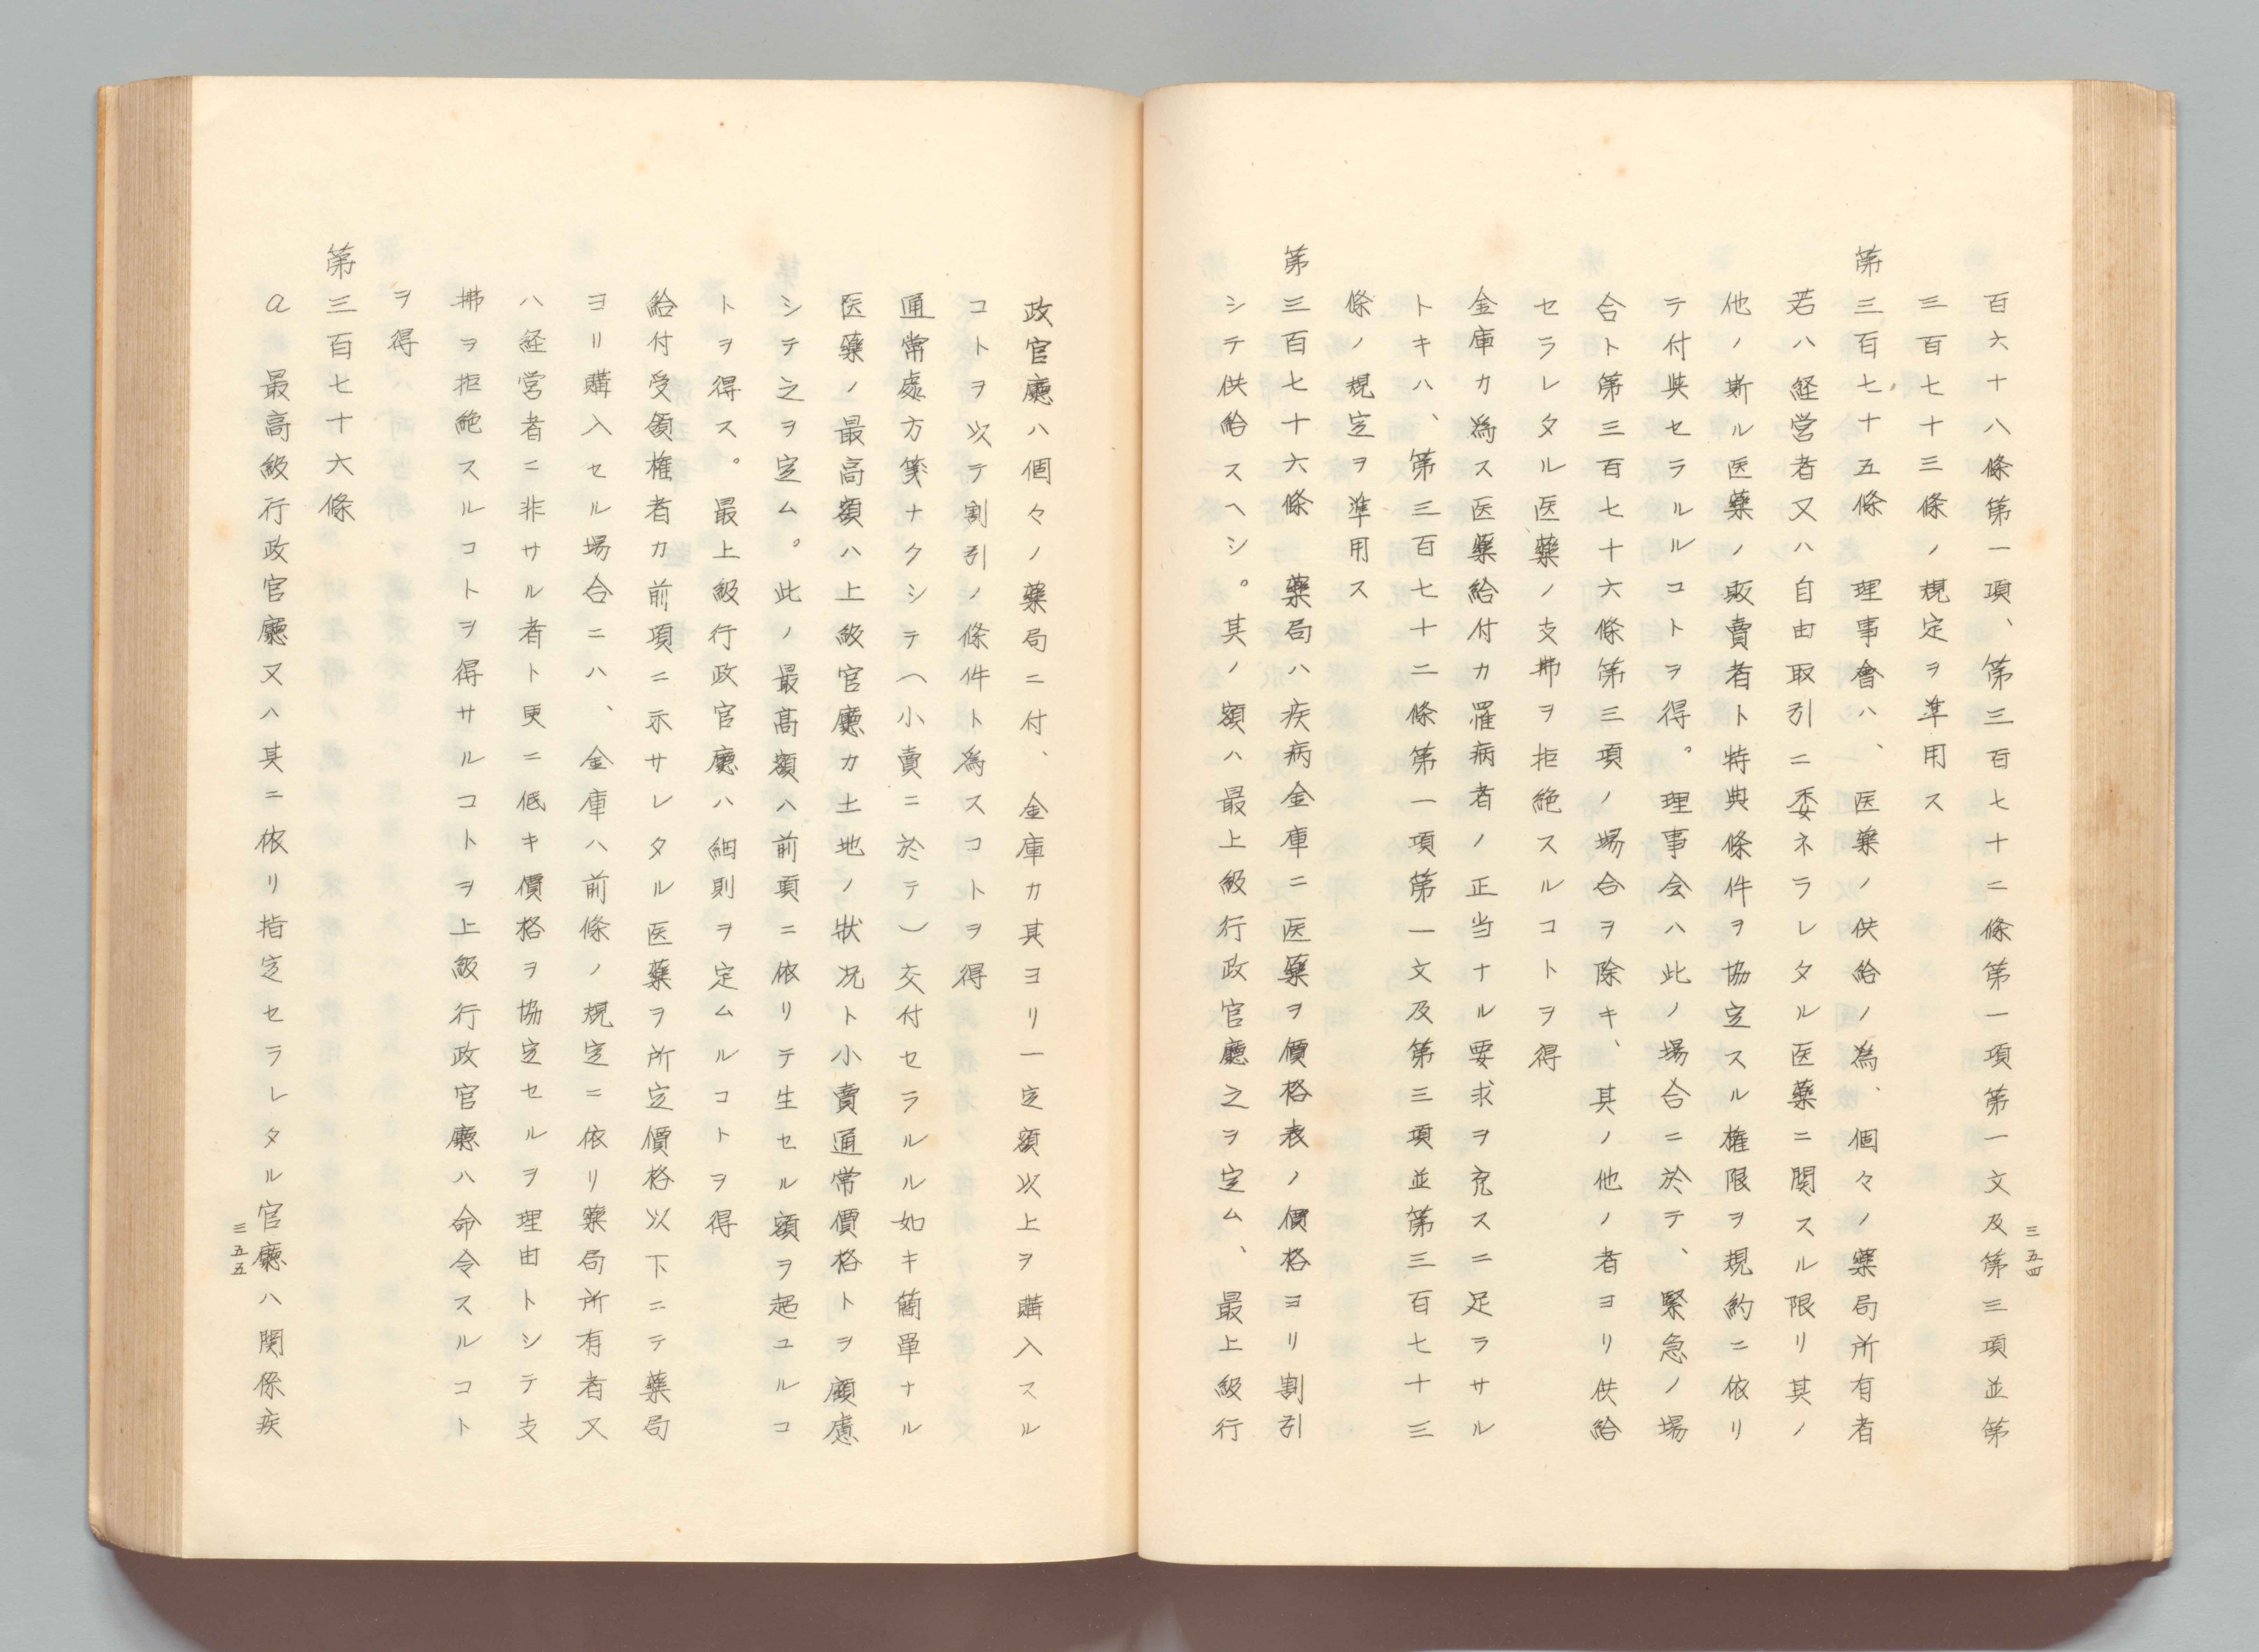 百六十八條第一項、第三百七十二條第一項第一文及第三項並第
三百七十三條ノ規定ヲ準用ス
第三百七十五條　理事會ハ、医藥ノ供給ノ為、個々ノ藥局所有者
若ハ経営者又ハ自由取引ニ委ネラレタル医藥ニ関スル限リ其ノ
他ノ斯ル医藥ノ販賣者ト特典條件ヲ協定スル権限ヲ規約ニ依リ
テ付與セラルルコトヲ得。理事会ハ此ノ場合ニ於テ、緊急ノ場
合ト第三百七十六條第三項ノ場合ヲ除キ、其ノ他ノ者ヨリ供給
セラレタル医藥ノ支拂ヲ拒絶スルコトヲ得
金庫カ為ス医藥給付カ罹病者ノ正当ナル要求ヲ充スニ足ラサル
トキハ、第三百七十二條第一項第一文及第三項並第三百七十三
條ノ規定ヲ準用ス
第三百七十六條　藥局ハ疾病金庫ニ医藥ヲ價格表ノ價格ヨリ割引
シテ供給スヘシ。其ノ額ハ最上級行政官廳之ヲ定ム、最上級行
三五四
政官廳ハ個々ノ藥局ニ付、金庫カ其ヨリ一定額以上ヲ購入スル
コトヲ以テ割引ノ條件ト為スコトヲ得
通常處方箋ナクシテ（小賣ニ於テ）交付セラルル如キ簡單ナル
医藥ノ最高額ハ上級官廳カ土地ノ狀況ト小賣通常價格トヲ顧慮
シテ之ヲ定ム。此ノ最高額ハ前項ニ依リテ生セル額ヲ超ユルコ
トヲ得ス。最上級行政官廳ハ細則ヲ定ムルコトヲ得
給付受領権者カ前項ニ示サレタル医藥ヲ所定價格以下ニテ藥局
ヨリ購入セル場合ニハ、金庫ハ前條ノ規定ニ依リ藥局所有者又
ハ経営者ニ非サル者ト更ニ低キ價格ヲ協定セルヲ理由トシテ支
拂ヲ拒絶スルコトヲ得サルコトヲ上級行政官廳ハ命令スルコト
ヲ得
第三百七十六條
a　最高級行政官廳又ハ其ニ依リ指定セラレタル官廳ハ関係疾
三五五